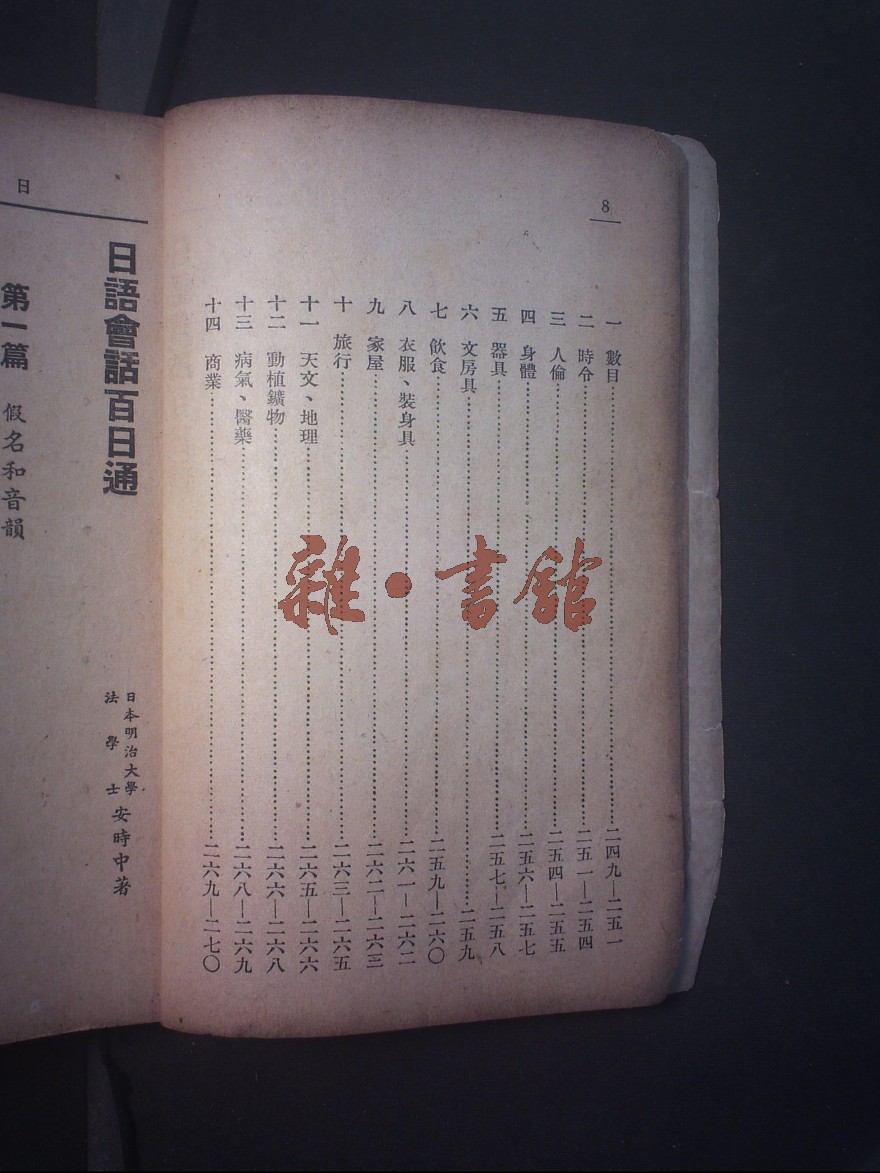 8
一 數目……二四九—二五一
二 時令……二五一—二五四
三 人倫……二五四—二五五
四 身體……二五六—二五七
五 器具……二五七—二五八
六 文房具……二五九
七 飲食……二五九—二六〇
八 衣服、裝身具……二六一—二六二
九 家屋……二六二—二六三
十 旅行……二六三—二六五
十一 天文、地理……二六五—二六六
十二 動植鑛物……二六六—二六八
十三 病氣、醫藥……二六八—二六九
十四 商業……二六九—二七〇
雜·書館
日
日語會話百日通
日本明治大學
法學士
安時中著
第一篇 假名和音韻